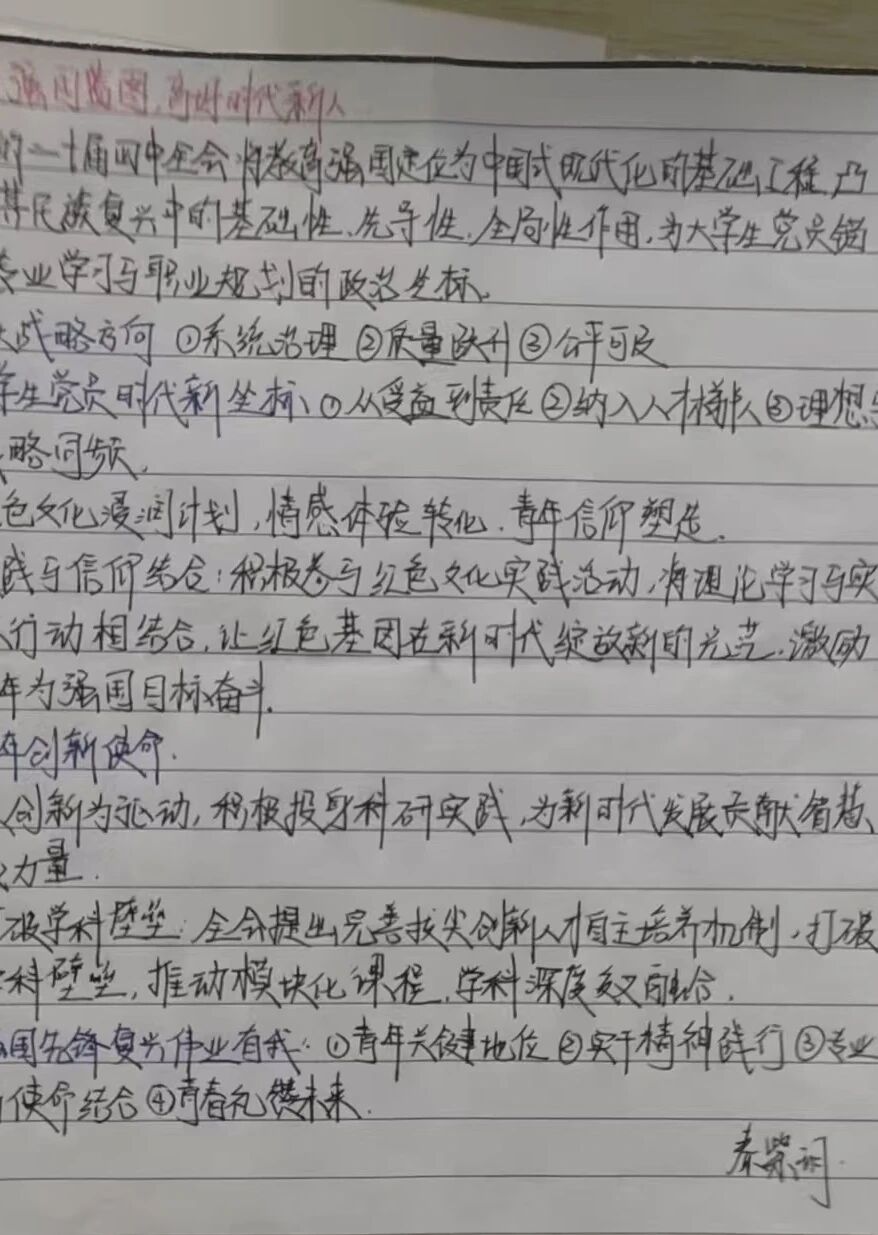 强国蓝图，育好时代新人
的二十届四中全会将教育强国定位为中国式现代化的基础工程，凸
其民族复兴中的基础性、先导性、全局性作用，为大学生党员锚
专业学习与职业规划的政治坐标。
大战略方向 ①系统治理 ②质量跃升 ③公平可及
学生党员时代新坐标：①从受益到责任 ②纳入人才梯队 ③理想与
略同频。
色文化浸润计划，情感体验转化，青年信仰塑造。
践与信仰结合：积极参与红色文化实践活动，将理论学习与实
行动相结合，让红色基因在新时代绽放新的光芒，激励
年为强国目标奋斗。
年创新使命.
创新为驱动，积极投身科研实践，为新时代发展贡献智慧、
力量.
破学科壁垒：全会提出完善拔尖创新人才自主培养机制，打破
科壁垒，推动模块化课程，学科深度交叉融合.
国先锋复兴伟业有我：①青年关键地位 ②实干精神践行 ③专业
使命结合 ④青春礼赞未来.